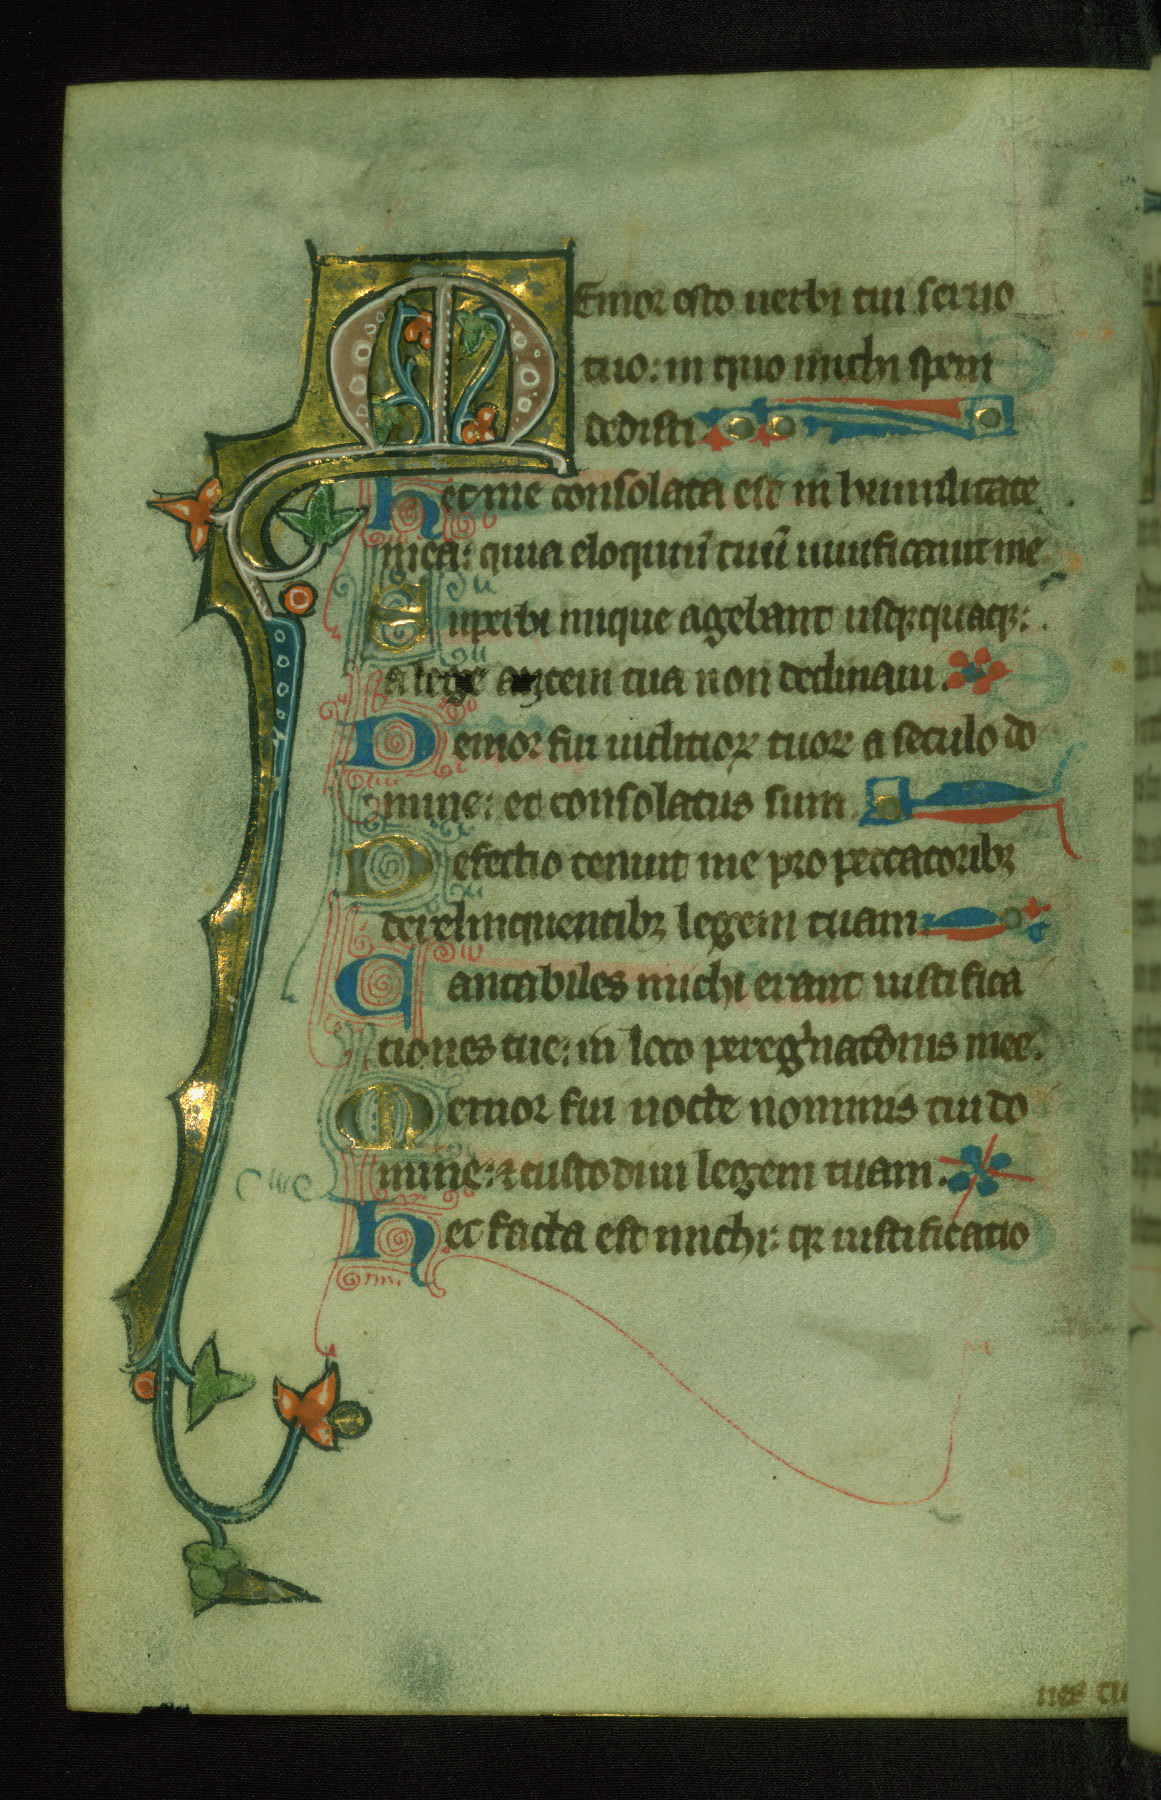 Memor esto uerbi tui seruo
tuo: in quo michi spem
dedisti
Hec me consolata est in humilitate
mea: quia eloquiū tuū uiuificauit me
Superbi inique agebant usqꝫquaqꝫ:
a lege autem tua non declinaui.
Memor fui iudicioꝝ tuoꝝ a seculo do
mine: et consolatus sum
Defectio tenuit me pro peccatoribꝫ
derelinquentibꝫ legem tuam
Cantabiles michi erant iustifica
tiones tue: in loco peregͥnatōnis mee.
Memor fui nocte nominis tui do
mine: ⁊ custodiui legem tuam.
Hec facta est michi: qꝛ iustificatio
nes tu